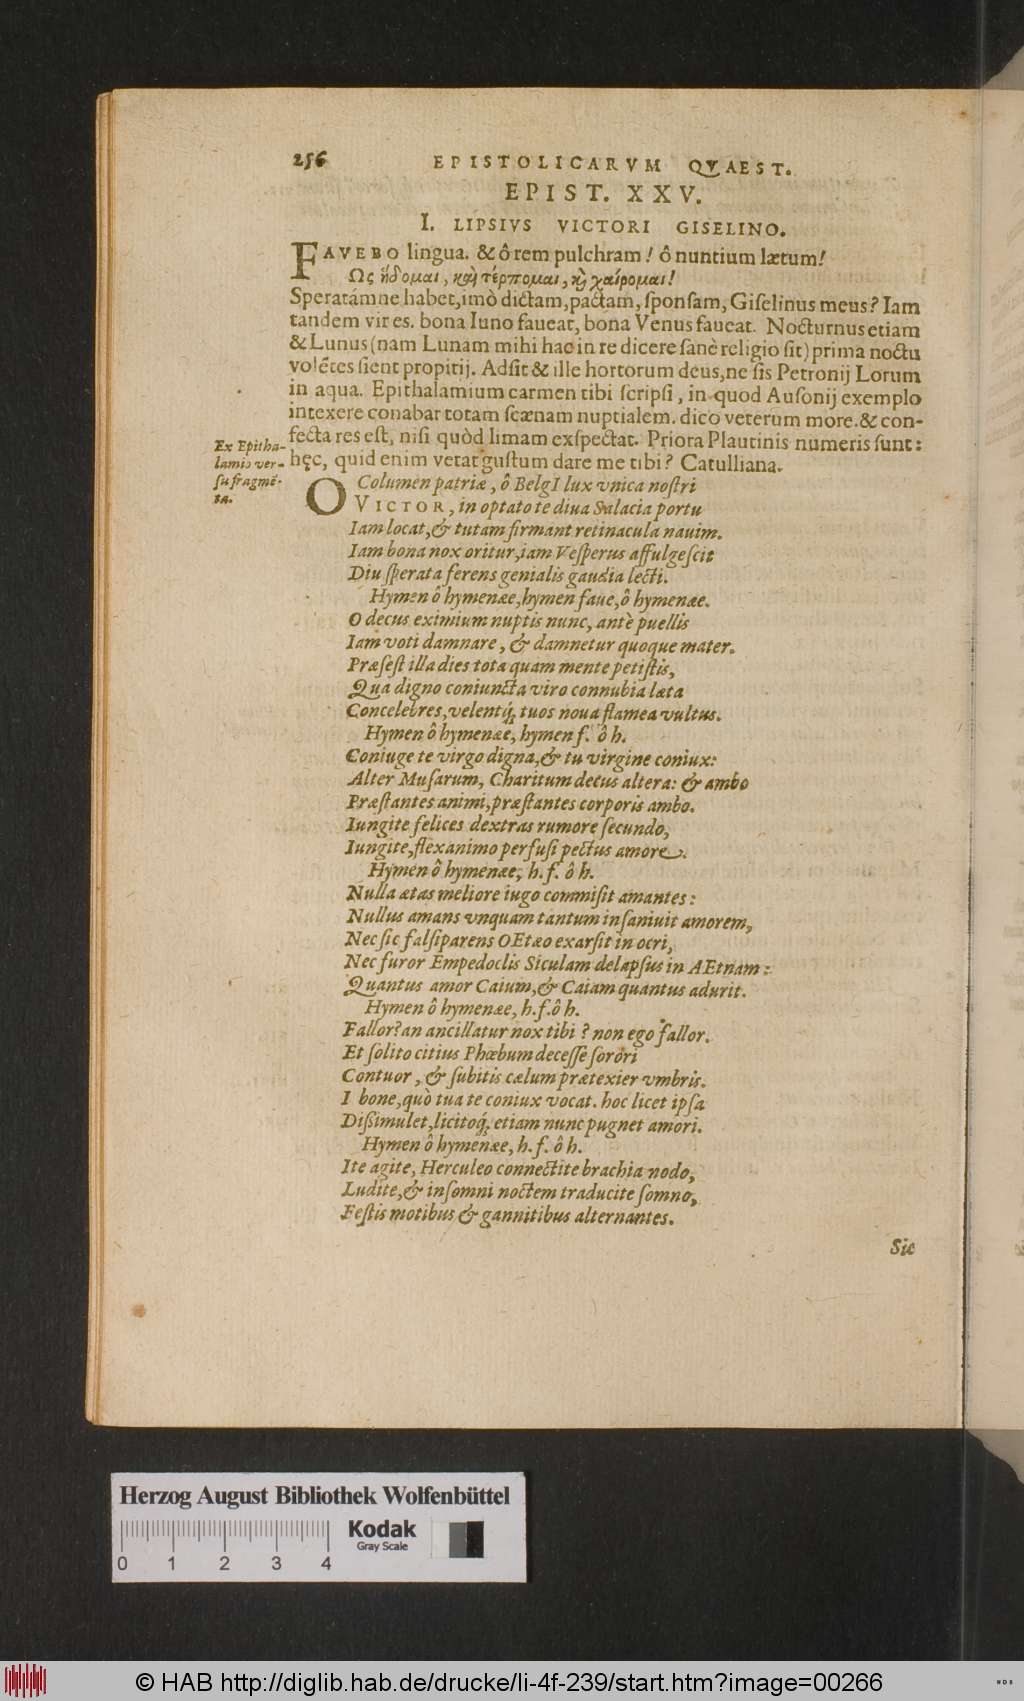 256 EPISTOLICARVM QVAEST.
EPIST. XXV.
I. LIPSIVS VICTORI GISELINO.
FAVEBO lingua. & ô rem pulchram! ô nuntium lætum!
Ως ἥδομαι, καὶ τέρπομαι, καὶ χαίρομαι!
Speratámne habet, imò dictam, pactam, ſponſam, Giſelinus meus? Iam
tandem vir es. bona Iuno faueat, bona Venus faueat. Nocturnus etiam
& Lunus (nam Lunam mihi hac in re dicere ſanè religio ſit) prima noctu
volẽtes ſient propitij. Adſit & ille hortorum deus, ne ſis Petronij Lorum
in aqua. Epithalamium carmen tibi ſcripſi, in quod Auſonij exemplo
intexere conabar totam ſcænam nuptialem. dico veterum more. & con-
fecta res eſt, niſi quòd limam exſpectat. Priora Plautinis numeris ſunt:
hęc, quid enim vetat guſtum dare me tibi? Catulliana.
Ex Epitha-
lamio ver-
ſu fragmẽ-
ta.
O Columen patriæ, ô BelgI lux vnica noſtri
VICTOR, in optato te diua Salacia portu
Iam locat, & tutam firmant retinacula nauim.
Iam bona nox oritur, iam Veſperus affulgeſcit
Diu ſperata ferens genialis gaudia lecti.
Hymen ô hymenæe, hymen faue, ô hymenæe.
O decus eximium nuptis nunc, antè puellis
Iam voti damnare, & damnetur quoque mater.
Præſeſt illa dies tota quam mente petiſtis,
Qua digno coniuncta viro connubia læta
Concelebres, velentq́; tuos noua flamea vultus.
Hymen ô hymenæe, hymen f. ô h.
Coniuge te virgo digna, & tu virgine coniux:
Alter Muſarum, Charitum decus altera: & ambo
Præſtantes animi, præſtantes corporis ambo.
Iungite felices dextras rumore ſecundo,
Iungite, flexanimo perfuſi pectus amore.
Hymen ô hymenæe, h. f. ô h.
Nulla ætas meliore iugo commiſit amantes:
Nullus amans vnquam tantum inſaniuit amorem,
Nec ſic falſiparens OEtæo exarſit in ocri,
Nec furor Empedoclis Siculam delapſus in AEtnam:
Quantus amor Caium, & Caiam quantus adurit.
Hymen ô hymenæe, h. f. ô h.
Fallor? an ancillatur nox tibi? non ego fallor.
Et ſolito citius Phœbum deceſſe ſorori
Contuor, & ſubitis cælum prætexier vmbris.
I bone, quò tua te coniux vocat. hoc licet ipſa
Diſsimulet, licitoq́; etiam nunc pugnet amori.
Hymen ô hymenæe, h. f. ô h.
Ite agite, Herculeo connectite brachia nodo,
Ludite, & inſomni noctem traducite ſomno,
Feſtis motibus & gannitibus alternantes.
Sic
Herzog August Bibliothek Wolfenbüttel
Kodak
Gray Scale
0 1 2 3 4
© HAB http://diglib.hab.de/drucke/li-4f-239/start.htm?image=00266